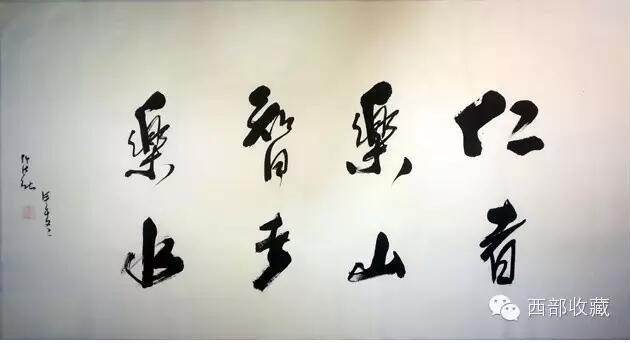 仁者
樂山
智者
樂水
西部收藏